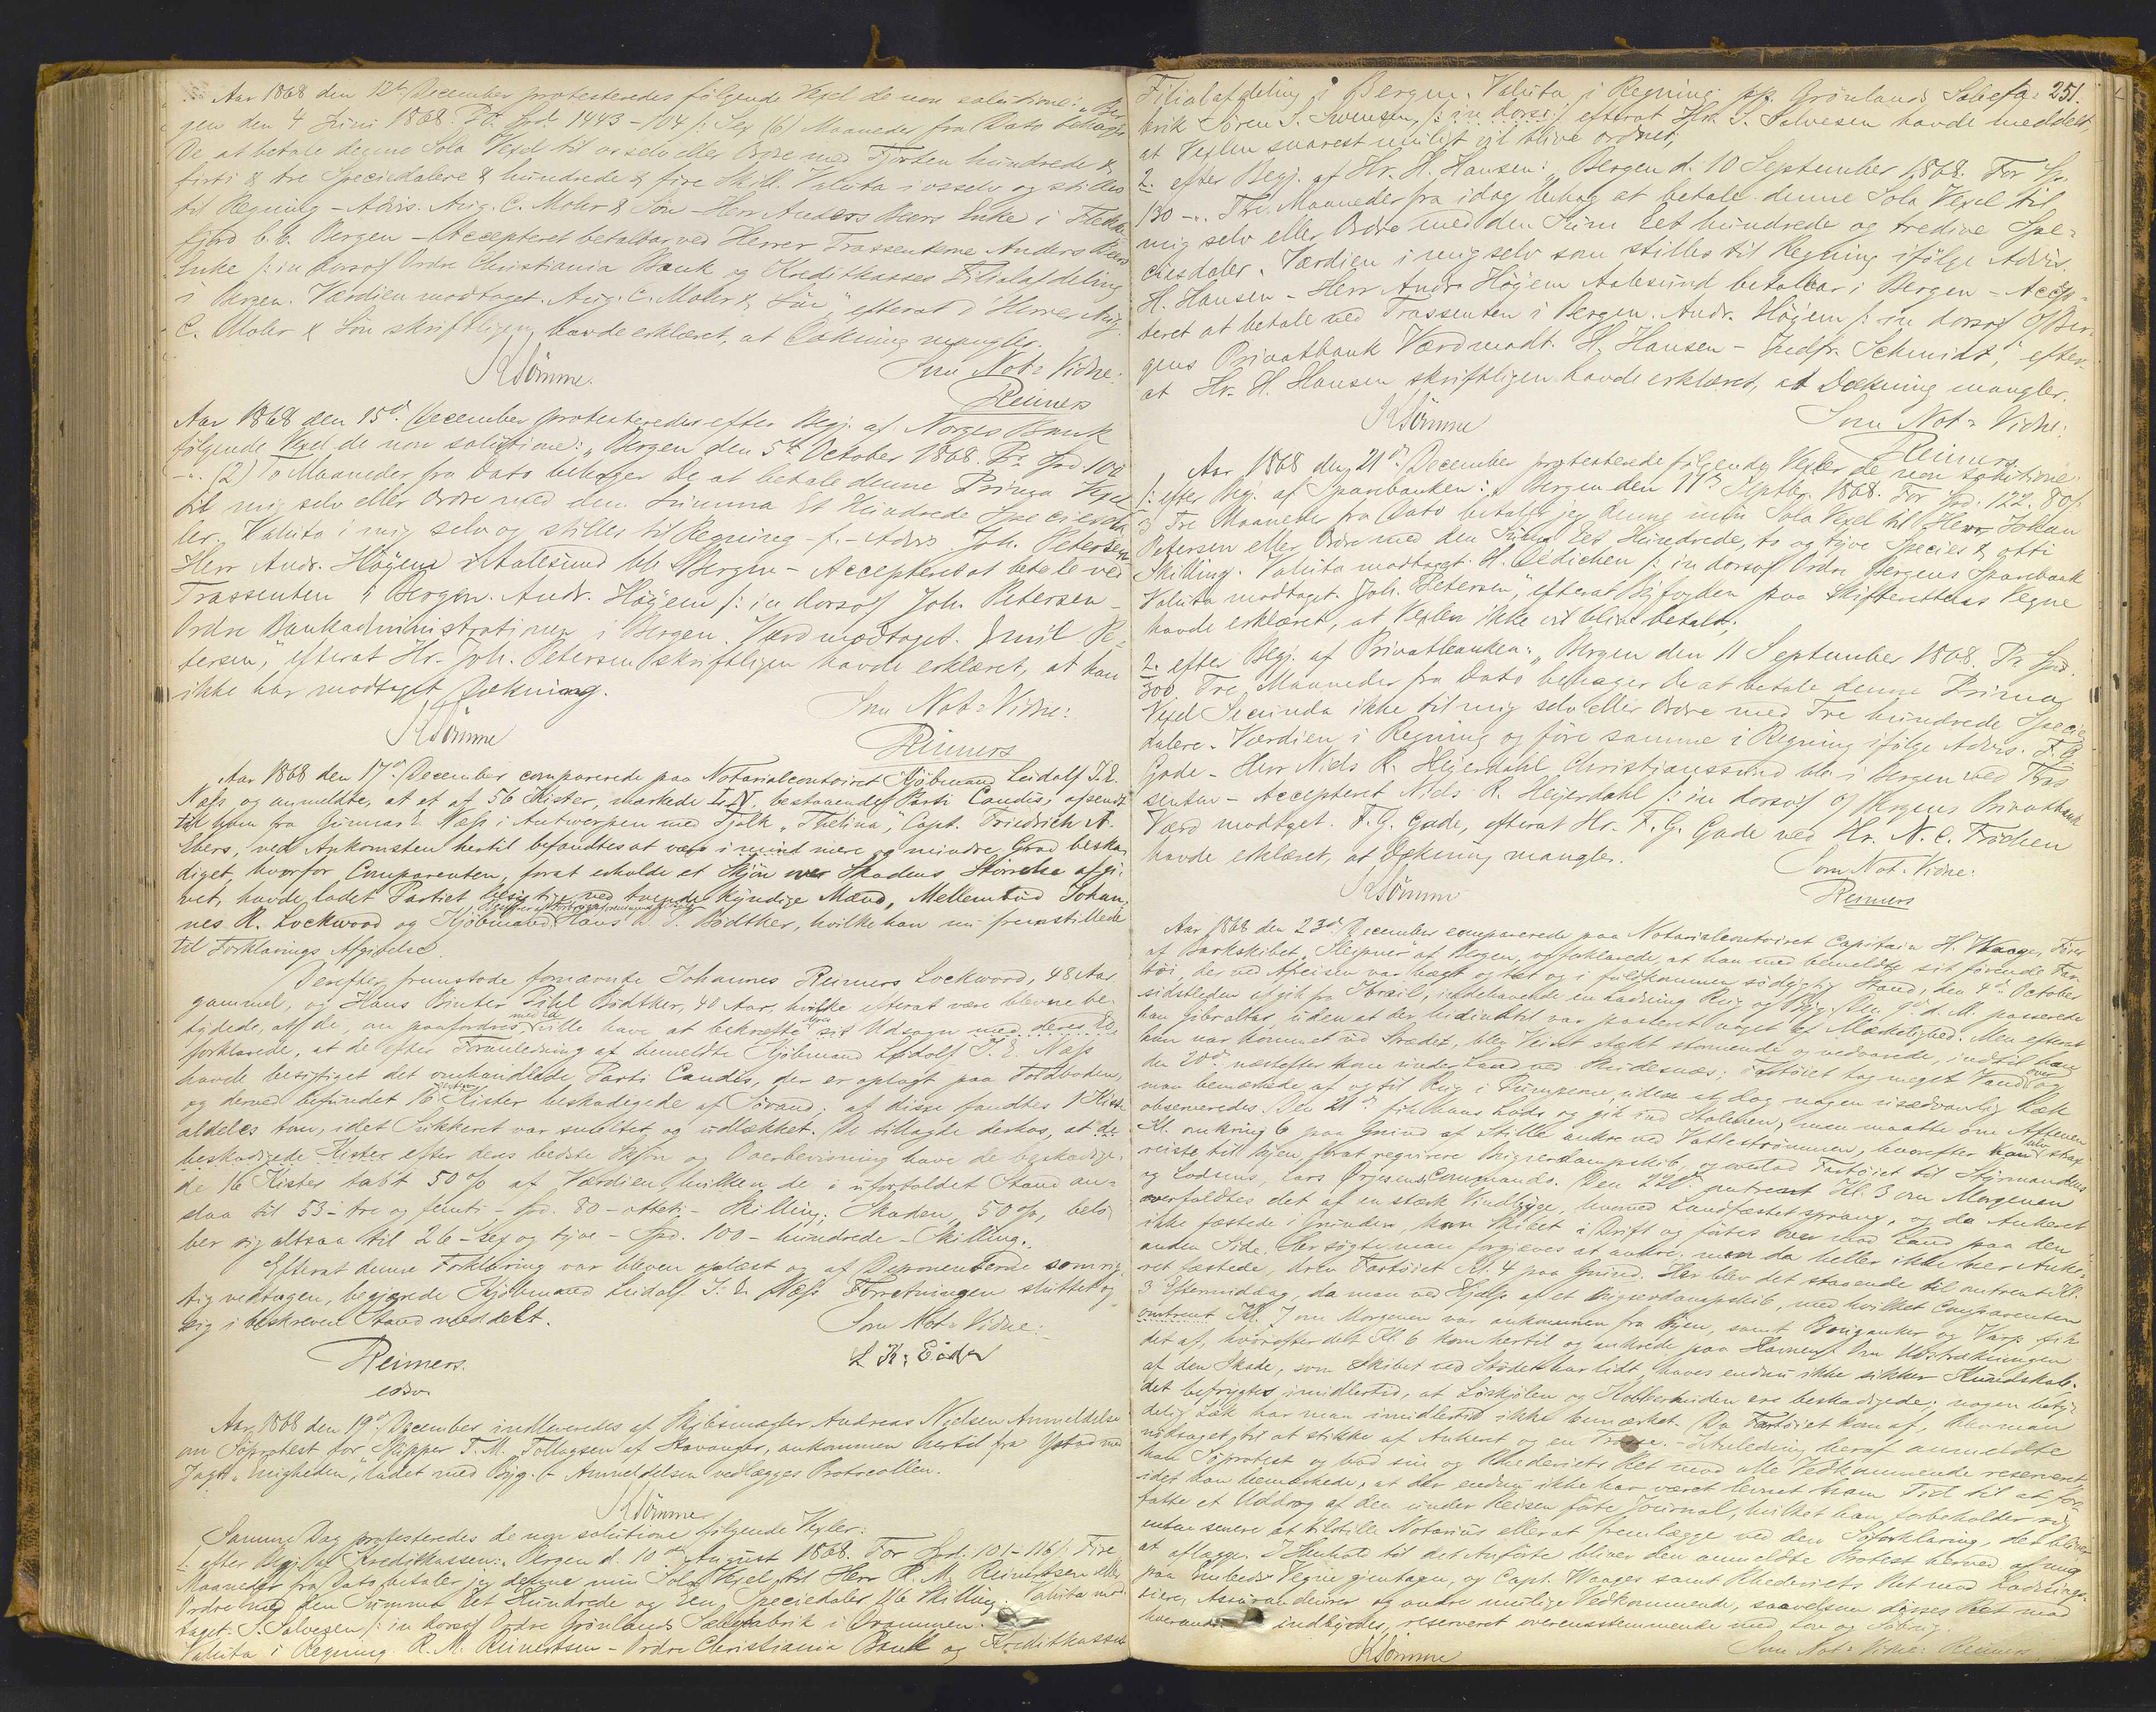 Aar 1868 den 12te December protesteredes følgende Vexel de non solutione: „Ber-
gen den 4 Juni 1868. Pr. Spd. 1443-104 /: Sex (6) Maaneder fra Dato behager
De at betale denne Sola Vexel til os selv eller Ordre med Fjorten hundrede &
firti & tre Speciedalere & hundrede & fire Skill. Valuta i os selv og stilles
til Regning - Advis. Aug. C. Mohr & Søn - Herr Anders Beers Enke i Flekke-
fjord b. b. Bergen - Accepteret betalbar ved Herrer Trassenterne Anders Beers
Enke /: in dorso :/ Ordre Christiania Bank og Kreditkasses Filialafdeling
i Bergen. Værdien modtaget. Aug. C. Mohr & Søn", efterat d'Herrer Aug.
C. Mohr & Søn skriftligen havde erklæret, at Dækning mangler.
KSömme. Som Not: Vidne:
Reimers
Aar 1868 den 15de December protesteredes efter Begj. af Norges Bank
følgende Vexel de non solutione: „Bergen den 5te October 1868. Pr. Spd. 100
-". (2) To Maaneder fra Dato behager De at betale denne Prima Vexel
til mig selv eller Ordre med den Summa Et Hundrede Speciesda-
ler. Valuta i mig selv og stilles til Regning - Advis Joh. Petersen
Herr Andr. Höyem i Aalesund bb Bergen - Accepteret at betale ved
Trassenten i Bergen. Andr. Höyem /: in dorso :/ Joh. Petersen -
Ordre Bankadministrationen i Bergen. Værd modtaget. Emil Pe-
tersen", efterat Hr. Joh. Petersen skriftligen havde erklæret, at han
ikke har modtaget Dækning.
KSömme Som Not: Vidne:
Reimers
Aar 1868 den 17de December comparerede paa Notarialcontoiret Kjöbmand Leidolf J. E.
Næss og anmeldte, at et af 56 Kister, markede bestaaende Parti Candis, afsendt
til ham fra Gunnar E. Næss i Antwerpen med Tjalk „Thelina", Capt. Friedrich A.
Evers, ved Ankomsten hertil befandtes at være i mere og mindre Grad beska-
diget, hvorfor Comparenten, forat erholde et Skjön over Skadens Störrelse afgi-
vet, havde ladet Partiet besigtige ved tvende kyndige Mænd, Mellembud Johan-
nes R. Lockwood og Kjöbmand Hans B. P. Bödtker, hvilke han nu fremstillede
til Forklarings Afgivelse.
Derefter fremstode fornævnte Johannes Reimers Lockwood, 48 Aar
gammel, og Hans Binter Pihl Bödtker, 40 Aar, hvilke efterat være blevne be-
tydede, at de, om paafordres med Ed ville have at bekræfte sit Udsagn
forklarede, at de efter Foranledning af bemeldte Kjöbmand Leidolf J. E. Næss
havde besigtiget det omhandlede Parti Candis, der er oplagt paa Toldboden,
og derved befundet 16 Kister beskadigede af Sövand; af disse fandtes 1 Kiste
aldeles tom, idet Sukkeret var smeltet og udlækket. De tillagde derhos, at de
beskadigede Kister efter deres bedste Skjön og Overbevisning have de beskadige-
de 16 Kister tabt 50 % af Værdien, hvilken de i uforfaldet Stand an-
slaa til 53 - tre og femti - Spd. 80 - otteti - Skilling; Skaden, 50 %, belö-
ber sig altsaa til 26 - sex og tyve - Spd. 100 - hundrede - Skilling.
Efterat denne Forklaring var bleven oplæst og af Deponenterne som rig-
tig vedtagen, begjærede Kjöbmand Leidolf J. E. Næss Forretningen sluttet og
sig i beskreven Stand meddelt. Som Not: Vidne:
Reimers.
Aar 1868 den 19de December indleveredes af Skibsmægler Andreas Nielsen Anmeldelse
om Söprotest for Skipper T. M. Tollagsen af Stavanger, ankommen hertil fra Ystad med
Jagt „Enigheden", ladet med Byg. - Anmeldelsen vedlægges Protocollen.
KSömme
Samme Dag protesteredes de non solutione følgende Vexler:
1. efter Begj. af Kreditkassen: „Bergen d. 10de August 1868. For Spd. 101-116/. Fire
Maaneder fra Dato betaler jeg denne min Sola Vexel til Herr R. M. Reinertsen eller
Ordre med den Summa Et Hundrede og Een Speciedaler 116 Skilling. Valuta mod-
taget. S. Salvesen /: in dorso :/ Ordre Grönlands Sæbefabrik i Drammen.
Valuta i Regning. R. M. Reinertsen - Ordre Christiania Bank og Kreditkasses
251.
Filialafdeling i Bergen. Valuta i Regning pp. Grönlands Sæbefa-
brik Sören S. Svensen, /: in dorso :/ efterat Hr. S. Salvesen havde meddelt,
at Vexlen snarest muligt vil blive ordnet;
2. efter Begj. af Hr. H. Hansen: „Bergen d. 10 September 1868. For Sp.
130 -". Tre Maaneder fra idag behag at betale denne Sola Vexel til
mig selv eller Ordre med den Sum Eet hundrede og tredive Spe-
ciesdaler. Værdien i mig selv som stilles til Regning ifölge Advis.
H. Hansen - Herr Andr. Höyem Aalesund betalbar i Bergen - Accep-
teret at betale ved Trassenten i Bergen. Andr. Höyem /: in dorso :/ O/ Ber-
gens Privatbank Værd modt. H. Hansen - Indfr. Schmidt", efter-
at Hr. H. Hansen skriftligen havde erklæret, at Dækning mangler.
KSömme Som Not: Vidne:
Reimers
Aar 1868 den 21de December protesterede følgende Vexler de non solutione:
1. efter Begj. af Sparebanken: „Bergen den 11te Septbr. 1868. For Spd. 122. 80/.
3 Tre Maaneder fra Dato betaler jeg denne min Sola Vexel til Herr Johan
Petersen eller Ordre med den Summa Eet Hundrede, to og tyve Species & otti
Skilling. Valuta modtaget. H. Dedichen /: in dorso :/ Ordre Bergens Sparebank
Valuta modtaget. Joh. Petersen", efterat Byfogden paa Skifterettens Vegne
havde erklæret, at Vexlen ikke vil blive betalt;
2. efter Begj. af Privatbanken: „Bergen den 11 September 1868. Pr. Spd.
300. Tre Maaneder fra Dato behager De at betale denne Prima
Vexel Secunda ikke til mig selv eller Ordre med Tre hundrede Specie-
dalere. Værdien i Regning og före samme i Regning ifölge Advis. F. G.
Gade - Herr Niels R. Heyerdahl Christianssund bb i Bergen ved Tras-
senten - Accepteret Niels R. Heyerdahl /: in dorso :/ O/ Bergens Privatbank
Værd modtaget. F. G. Gade, efterat Hr. F. G. Gade ved Hr. N. C. Fröchen
havde erklæret, at Dækning mangler.
KSömme Som Not: Vidne:
Reimers
Aar 1868 den 23de December comparerede paa Notarialcontoiret Capitain H. Waage, Förer
af Barkskibet „Sleipner" af Bergen, og forklarede, at han med bemeldte sit förende Far-
töi, der ved Afreisen var tægt og tæt og i fuldkommen södygtig Stand, den 4de October
sidstleden afgik fra Ibrail, indehavende en Ladning Rug og Byg. Den 9de d. M. passerede
han Gibraltar, uden at der indtil var passeret noget af Mærkelighed. Men efterat
han var kommet ud Strædet, blev Veiret stærkt stormende og vedvarede, indtil han
den 20de næstefter kom under Land ved Skudesnæs; Fartöiet tog meget Vand over og
man bemærkede af og til Rug i Pumperne, uden at dog nogen usædvanlig Læk
observeredes. Den 21de fik han Lods og gik ind Stolmen, men maatte om Aftenen
Kl. omkring 6 paa Grund af Stille ankre ved Vatlestrømmen, hvorefter han strax
reiste til Byen, forat requirere Bugserdampskib, og overlod Fartöiet til Styrmandens
og Lodsens, Lars Örjesens Commando. Den 22de omtrent Kl. 3 om Morgenen
overfaldtes det af en stærk Vindbyge, hvorved Landfæstet sprang, og da Ankeret
ikke fæstede i Grunden, kom Skibet i Drift og förtes over mod Land paa den
anden Side. Her sögte man forgjæves at ankre; men da heller ikke her Anke-
ret fæstede, drev Fartöiet Kl. 4 paa Grund. Her blev det staaende til omtrent Kl.
3 Eftermiddag, da man ved Hjælp af et Bugserdampskib, med hvilket Comparenten
omtrent Kl. 7 om Morgenen var ankommen fra Byen, samt Bouganker og Varp fik
det af, hvorefter det Kl. 6 kom hertil og ankrede paa Havnen. Om Udstrækningen
af den Skade, som Skibet ved Stödet har lidt, haves endnu ikke sikker Kundskab;
det befrygtes imidlertid, at Löskjölen og Kobberhuden ere beskadigede; nogen bety-
delig Læk har man imidlertid ikke bemærket. Da Fartöiet kom af, blev man
nödsaget til at stikke af Ankeret og en Trosse. - I Anledning heraf anmeldte
han Söprotest og bad sin og Rhederiets Ret mod alle Vedkommende reserveret,
idet han bemærkede, at der endnu ikke har været levnet ham Tid til at for-
fatte et Uddrag af den under Reisen förte Journal, hvilket han forbeholder sig
enten senere at tilstille Notarius eller at fremlægge ved den Söforklaring, det bliver
at aflægge. I Henhold til det Anförte bliver den anmeldte Protest herved af mig
paa Embeds Vegne gjentagen, og Capt. Waages samt Rhederiets Ret mod Ladnings-
eiere, Assurandeurer og andre mulige Vedkommende, saavelsom disses Ret mod
hverandre indbyrdes, reserveret overensstemmende med Lov og Söbrug.
KSömme Som Not: Vidne: Reimers